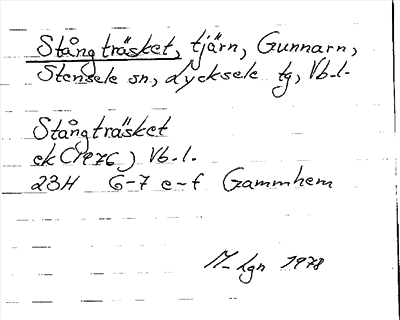 Stångträsket, tjärn, Gunnarn,
Stensele sn, Lycksele tg, Vb.l.
Stångträsket
ek (1976) Vb.l.
23H 6-7 e-f Gammhem
M-Lgn 1978